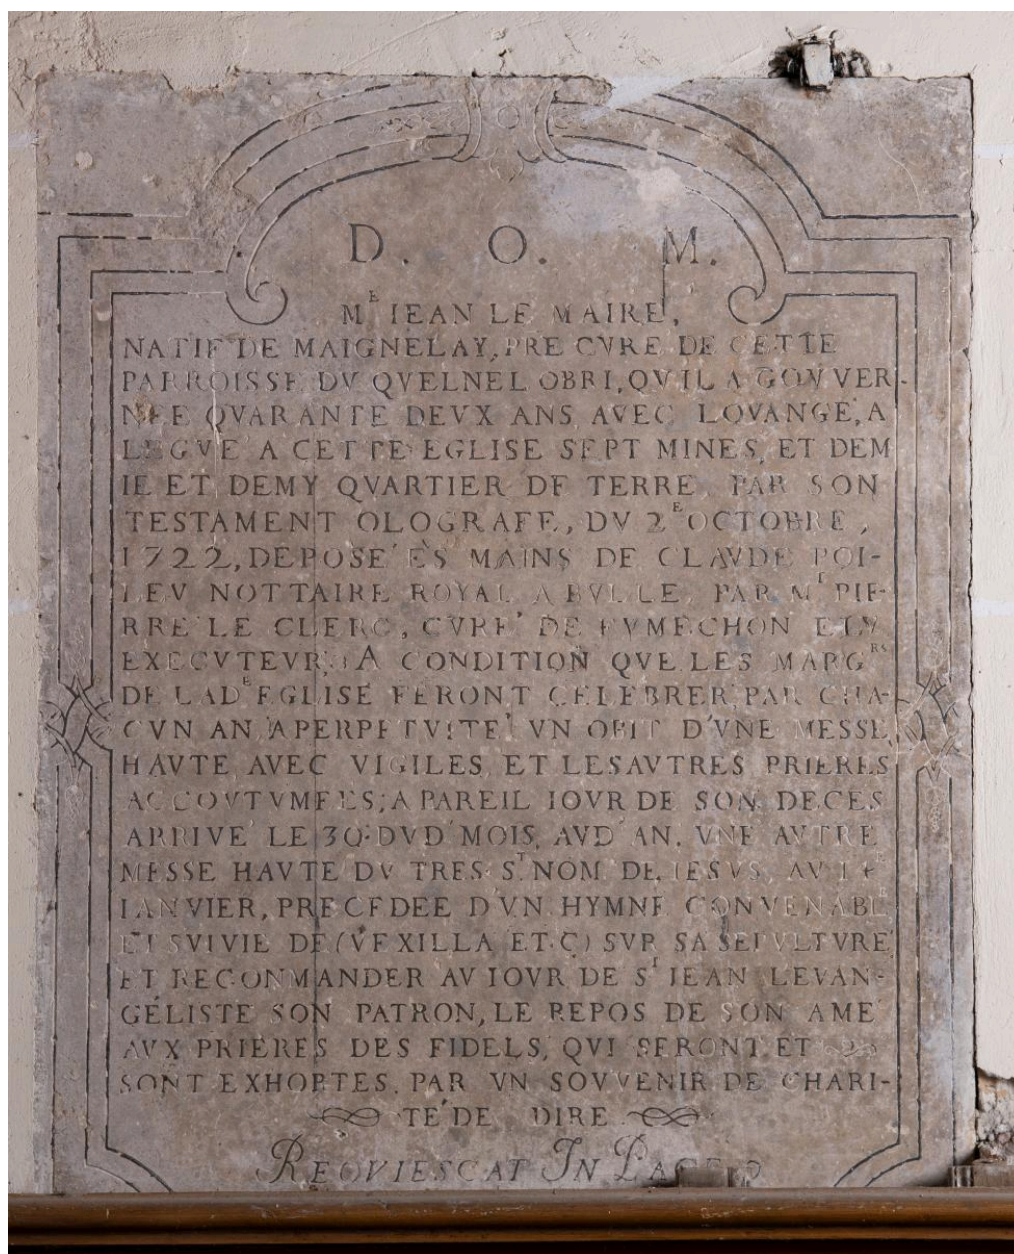 D. O. M.
Mᴱ IEAN LE MAIRE,
NATIF DE MAIGNELAY, PRE CVRE DE CETTE
PARROISSE DV QVELNEL OBRI, QV'IL A GOVVER-
NEE QVARANTE DEVX ANS AVEC LOVANGE, A
LEGVE' A CETTE EGLISE SEPT MINES, ET DEM
IE ET DEMY QVARTIER DE TERRE, PAR SON
TESTAMENT OLOGRAFE, DV 2ᴱ OCTOBRE,
1722, DEPOSE' E'S MAINS DE CLAVDE POI-
LEV NOTTAIRE ROYAL A BVLLE, PAR Mᴿ PIE-
RRE LE CLERC, CVRE' DE FVMECHON ET
EXECVTEVR, A CONDITION QVE LES MARGᴿˢ
DE LADᴱ EGLISE FERONT CELEBRER PAR CHA-
CVN AN A PERPETVITE' VN OBIT D'VNE MESSE
HAVTE AVEC VIGILES, ET LES AVTRES PRIERES
ACCOVTVMEES; A PAREIL IOVR DE SON DECES
ARRIVE' LE 30. DVD' MOIS, AVD' AN. VNE AVTRE
MESSE HAVTE DV TRES Sᵀ NOM DE IESVS, AV 1ᴱᴿ
IANVIER, PRECEDEE D'VN HYMNE CONVENABLᴱ
ET SVIVIE DE (VEXILLA ET.C) SVR SA SEPVLTVRE
ET RECONMANDER AV IOVR DE Sᵀ JEAN LEVAN-
GÉLISTE SON PATRON, LE REPOS DE SON AME
AVX PRIERES DES FIDELS, QVI SERONT ET
SONT EXHORTES, PAR VN SOVVENIR DE CHARI-
TE' DE DIRE
REQVIESCAT IN PACE